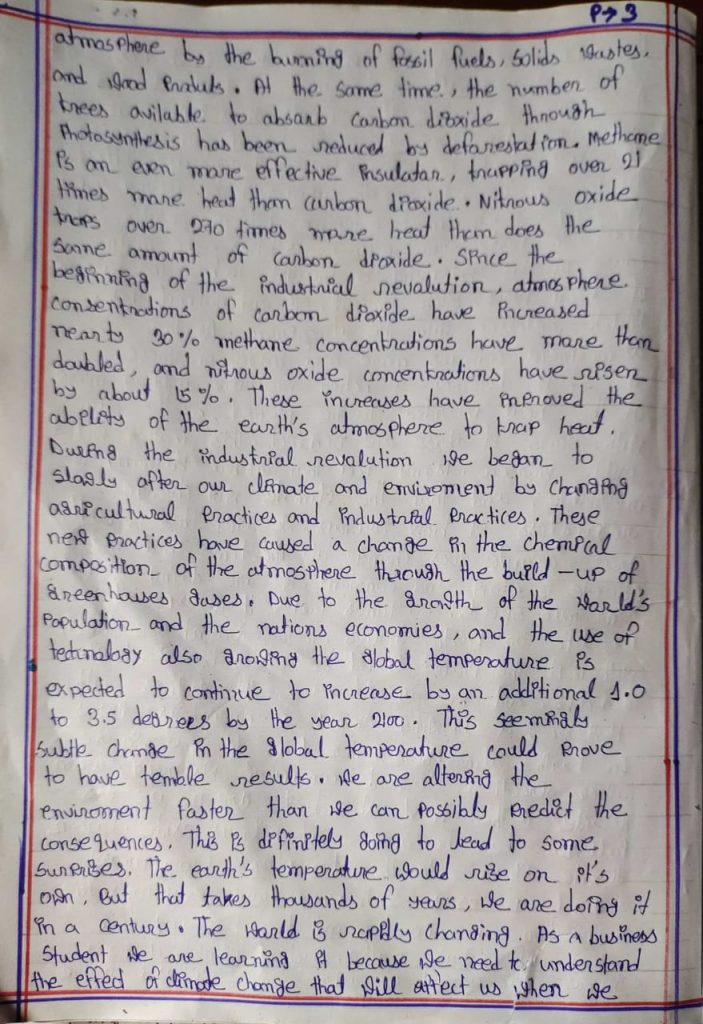 P→3
atmosphere by the burning of fossil fuels, solids wastes,
and wood Produts. At the same time, the number of
trees avilable to absarb carbon dioxide through
Photosynthesis has been reduced by defarestation. Methane
is an even more effective insulatar, trapping over 21
times more heat than carbon dioxide. Nitrous oxide
traps over 270 times more heat than does the
same amount of carbon dioxide. Since the
beginning of the industrial revalution, atmosphere
consentrations of carbon dioxide have increased
nearty 30% methane concentrations have more than
doubled, and nitrous oxide concentrations have risen
by about 15%. These increases have inproved the
abelity of the earth's atmosphere to trap heat.
During the industrial revalution we began to
slawly after our climate and enviroment by changing
agricultural Practices and industrial Practices. These
new Practices have caused a change in the chemical
composition of the atmosphere through the build-up of
Greenhouses gases. Due to the growth of the warld's
Population and the nations economies, and the use of
technology also growing the global temperature is
expected to continue to increase by an additional 1.0
to 3.5 degrees by the year 2100. This seemingly
subtle change in the global temperature could Prove
to have terrible results. We are altering the
enviroment faster than we can possibly Predict the
consequences. This is difinitely going to lead to some
surprises. The earth's temperature would rise on it's
own, But that takes thousands of years, we are doing it
in a century. The warld is rappidly changing. As a business
student we are learning it because we need to understand
the effect of climate change that will affect us when we